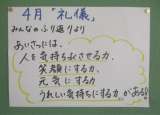 4月「礼儀」
みんなのふり返りより
あいさつには、
人を気持ちよくさせる力、
笑顔にする力、
元気にする力、
うれしい気持ちにする力がある！